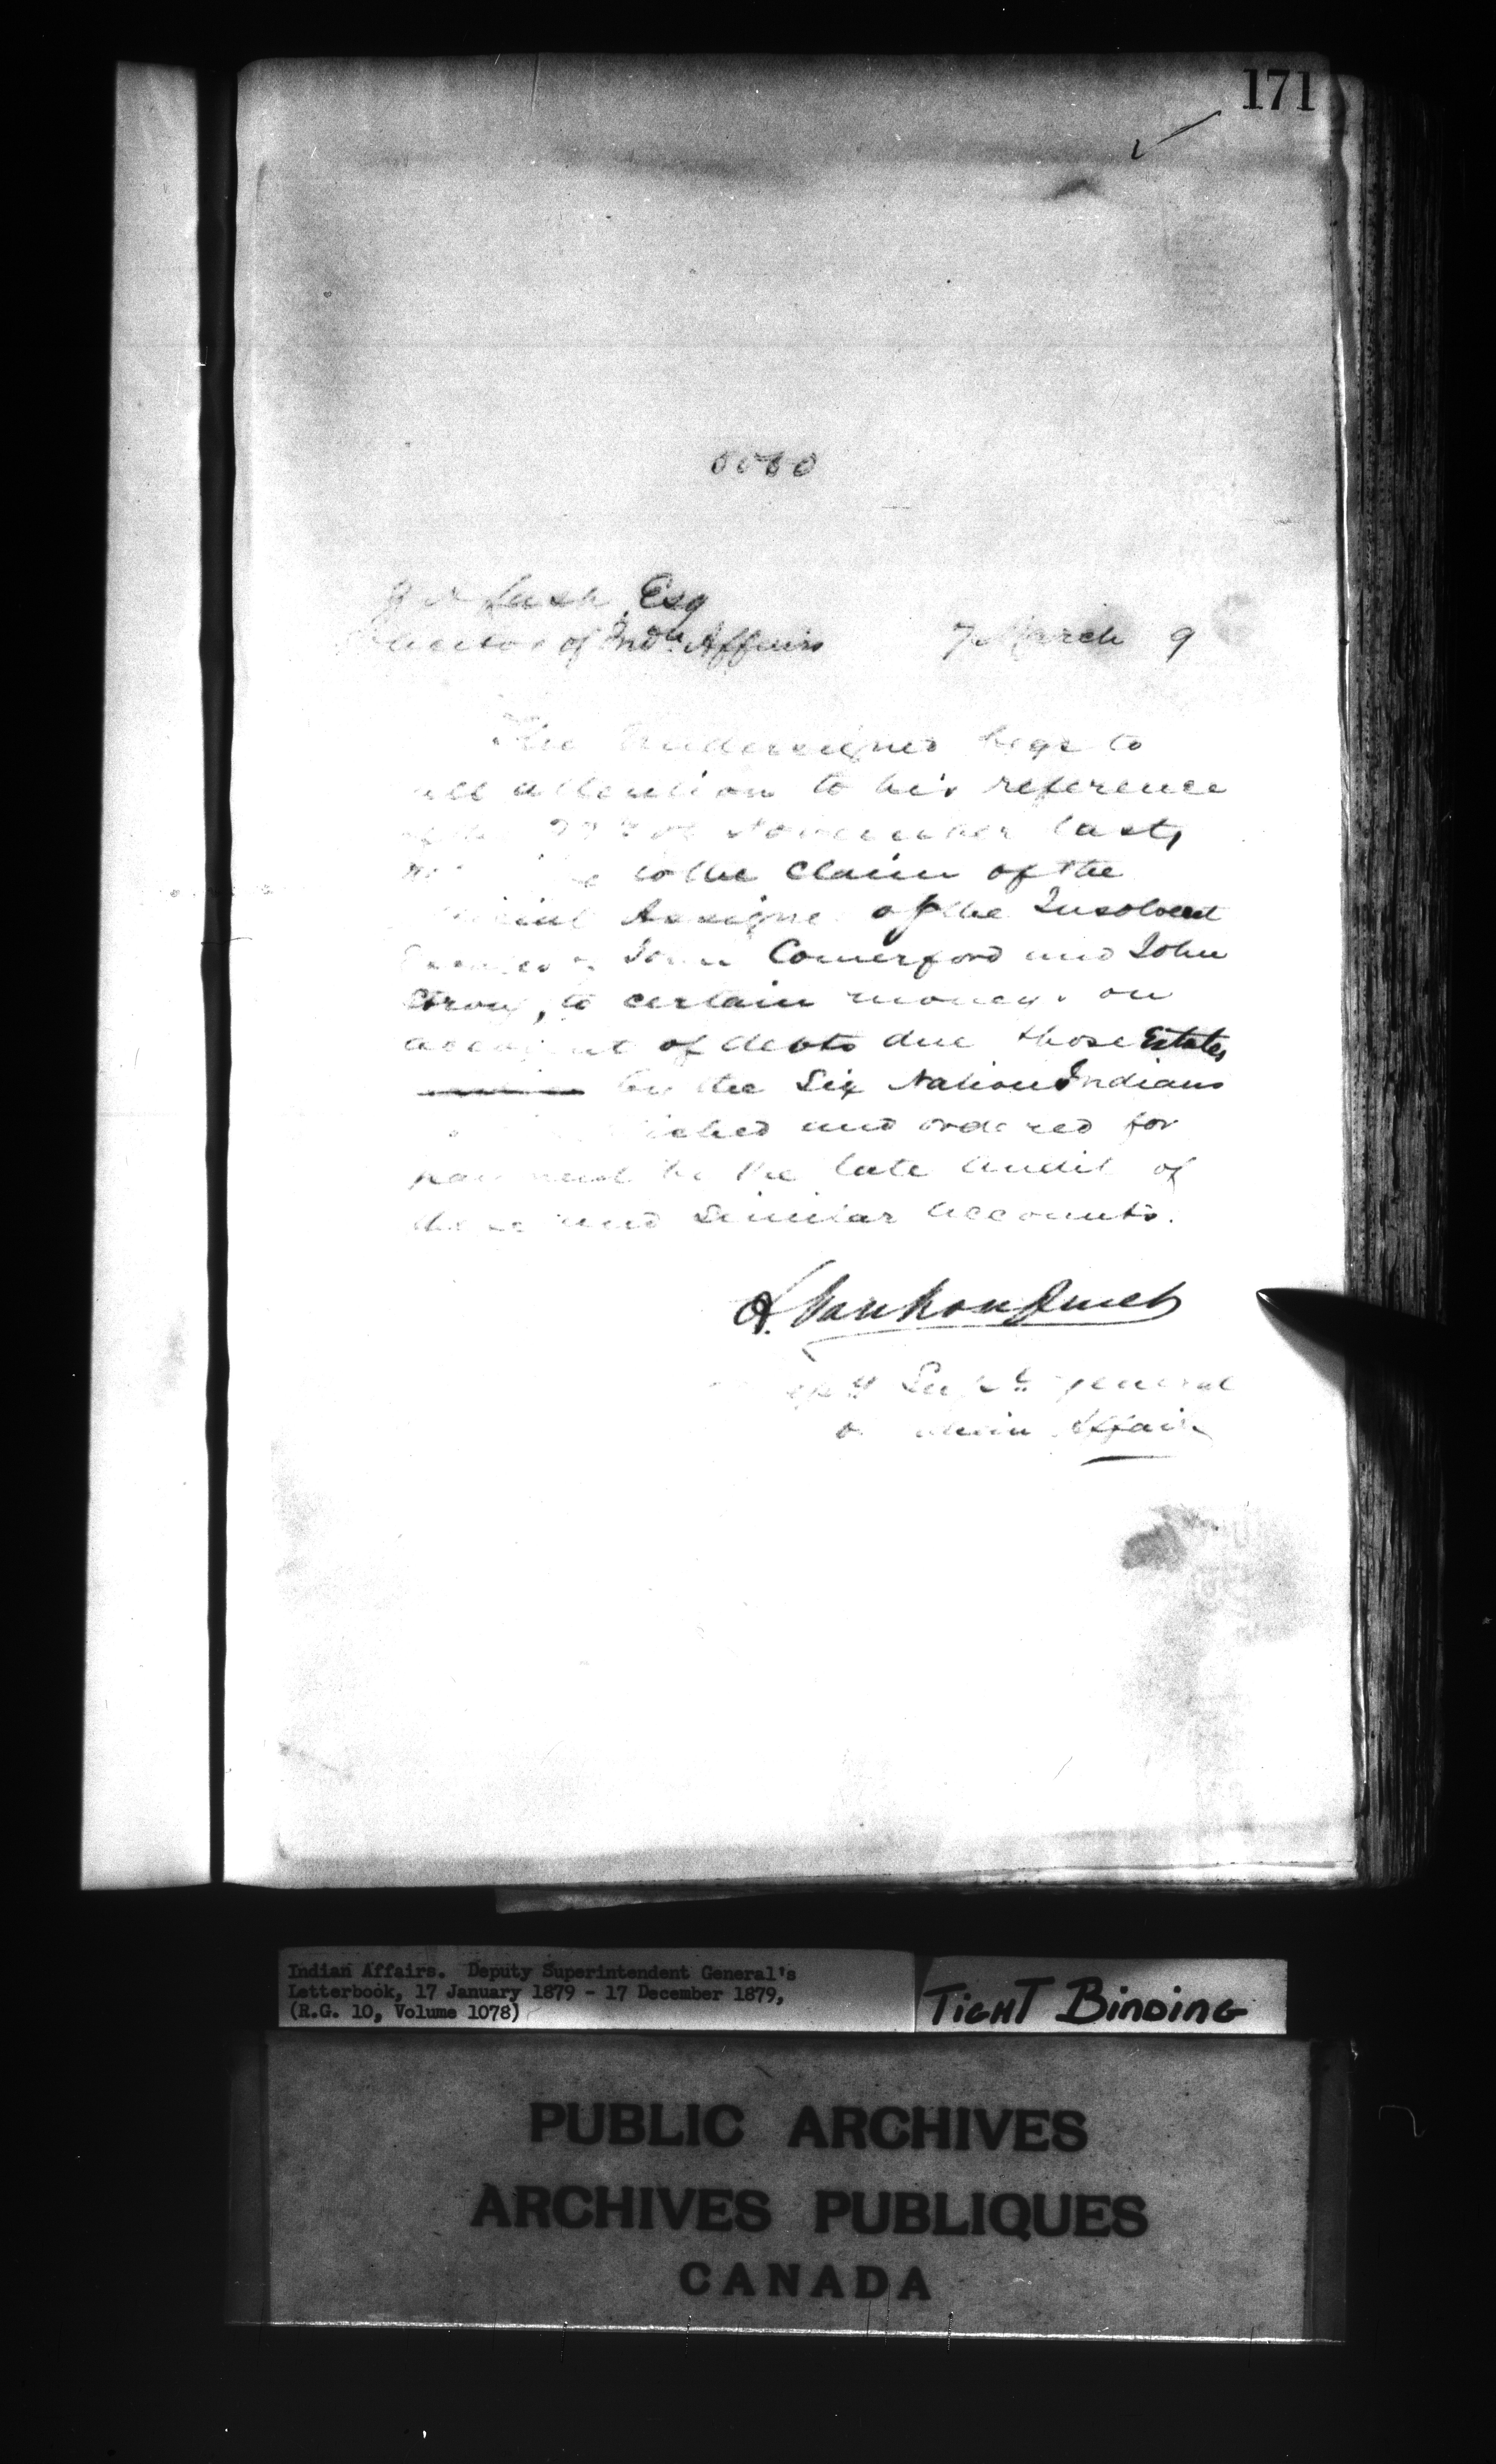 171
Esq
of Ind'n Affairs 7 March 9
The Undersigned begs to
call attention to his reference
of the November last,
to the claim of the
Assignee of the Insolvent
Comerford and John
Strong, to certain moneys on
account of debts due those Estates
by the Six Nation Indians
and ordered for
payment by the late Audit of
these and similar accounts.
L. VanKoughnet
Dep'y Sup't General
of Indian Affairs
Indian Affairs. Deputy Superintendent General's
Letterbook, 17 January 1879 - 17 December 1879,
(R.G. 10, Volume 1078)
TIGHT BINDING
PUBLIC ARCHIVES
ARCHIVES PUBLIQUES
CANADA